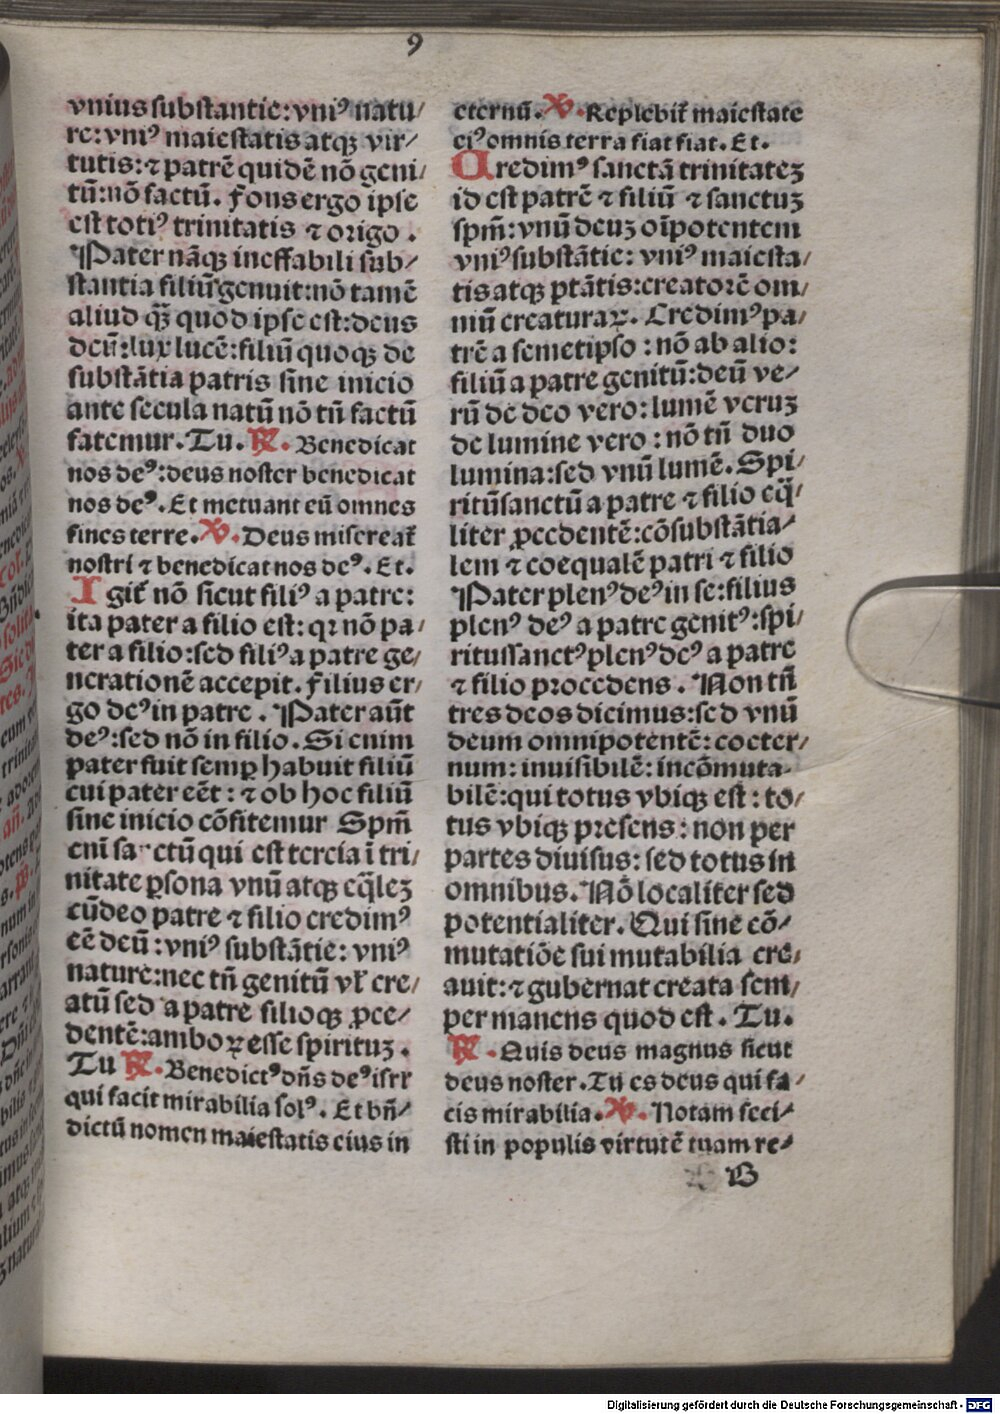 9
vnius substantie: vniꝰ natu/
re: vniꝰ maiestatis atqꝫ vir/
tutis: ⁊ patrē quidē nō geni/
tū: nō factū. Fons ergo ipse
est totiꝰ trinitatis ⁊ origo.
Pater nāqꝫ ineffabili sub/
stantia filiū genuit: nō tamē
aliud qͣꝫ quod ipse est: deus
deū: lux lucē: filiū quoqꝫ de
substātia patris sine inicio
ante secula natū nō tñ factū
fatemur. Tu. ℟. Benedicat
nos deꝰ: deus noster benedicat
nos deꝰ. Et metuant eū omnes
fines terre. ℣. Deus misereat̃
nostri ⁊ benedicat nos deꝰ. Et.
Igit̃ nō sicut filiꝰ a patre:
ita pater a filio est: qꝛ nō pa/
ter a filio: sed filiꝰ a patre ge/
nerationē accepit. Filius er/
go deꝰ in patre. Pater aūt
deꝰ: sed nō in filio. Si enim
pater fuit semꝑ habuit filiū
cui pater eēt: ⁊ ob hoc filiū
sine inicio cōfitemur Spm̄
eni sanctū qui est tercia ī tri/
nitate ꝑsona vnū atqꝫ eq̄leꝫ
cū deo patre ⁊ filio credimꝰ
eē deū: vniꝰ substātie: vniꝰ
nature: nec tñ genitū vl̃ cre/
atū sed a patre filioqꝫ ꝓce/
dentē: amboꝝ esse spirituꝫ.
Tu ℟. Benedictꝰ dñs deꝰ isrl̃
qui facit mirabilia solꝰ. Et bñ/
dictū nomen maiestatis eius in
eternū. ℣. Replebit̃ maiestate
eiꝰ omnis terra fiat fiat. Et.
Credimꝰ sanctā trinitateꝫ
id est patrē ⁊ filiū ⁊ sanctuꝫ
spm̄: vnū deuꝫ oīpotentem
vniꝰ substātie: vniꝰ maiesta/
tis atqꝫ ptātis: creatorē om/
niū creaturaꝝ. Credimꝰ pa/
trē a semetipso: nō ab alio:
filiū a patre genitū: deū ve/
rū de deo vero: lumē veruꝫ
de lumine vero: nō tñ duo
lumina: sed vnū lumē. Spi/
ritū sanctū a patre ⁊ filio eq̄/
liter ꝓcedentē: cōsubstātia/
lem ⁊ coequalē patri ⁊ filio
Pater plenꝰ deꝰ in se: filius
plenꝰ deꝰ a patre genitꝰ: spi/
ritussanctꝰ plenꝰ deꝰ a patre
⁊ filio procedens. Non tñ
tres deos dicimus: sed vnū
deum omnipotentē: coeter/
num: inuisibilē: incōmuta-
bilē: qui totus vbiqꝫ est: to/
tus vbiqꝫ presens: non per
partes diuisus: sed totus in
omnibus. Nō localiter sed
potentialiter. Qui sine cō/
mutatiōe sui mutabilia cre/
auit: ⁊ gubernat creata sem/
per manens quod est. Tu.
℟. Quis deus magnus sicut
deus noster. Tu es deus qui fa/
cis mirabilia. ℣. Notam feci/
sti in populis virtutē tuam re/
B
Digitalisierung gefördert durch die Deutsche Forschungsgemeinschaft - DFG